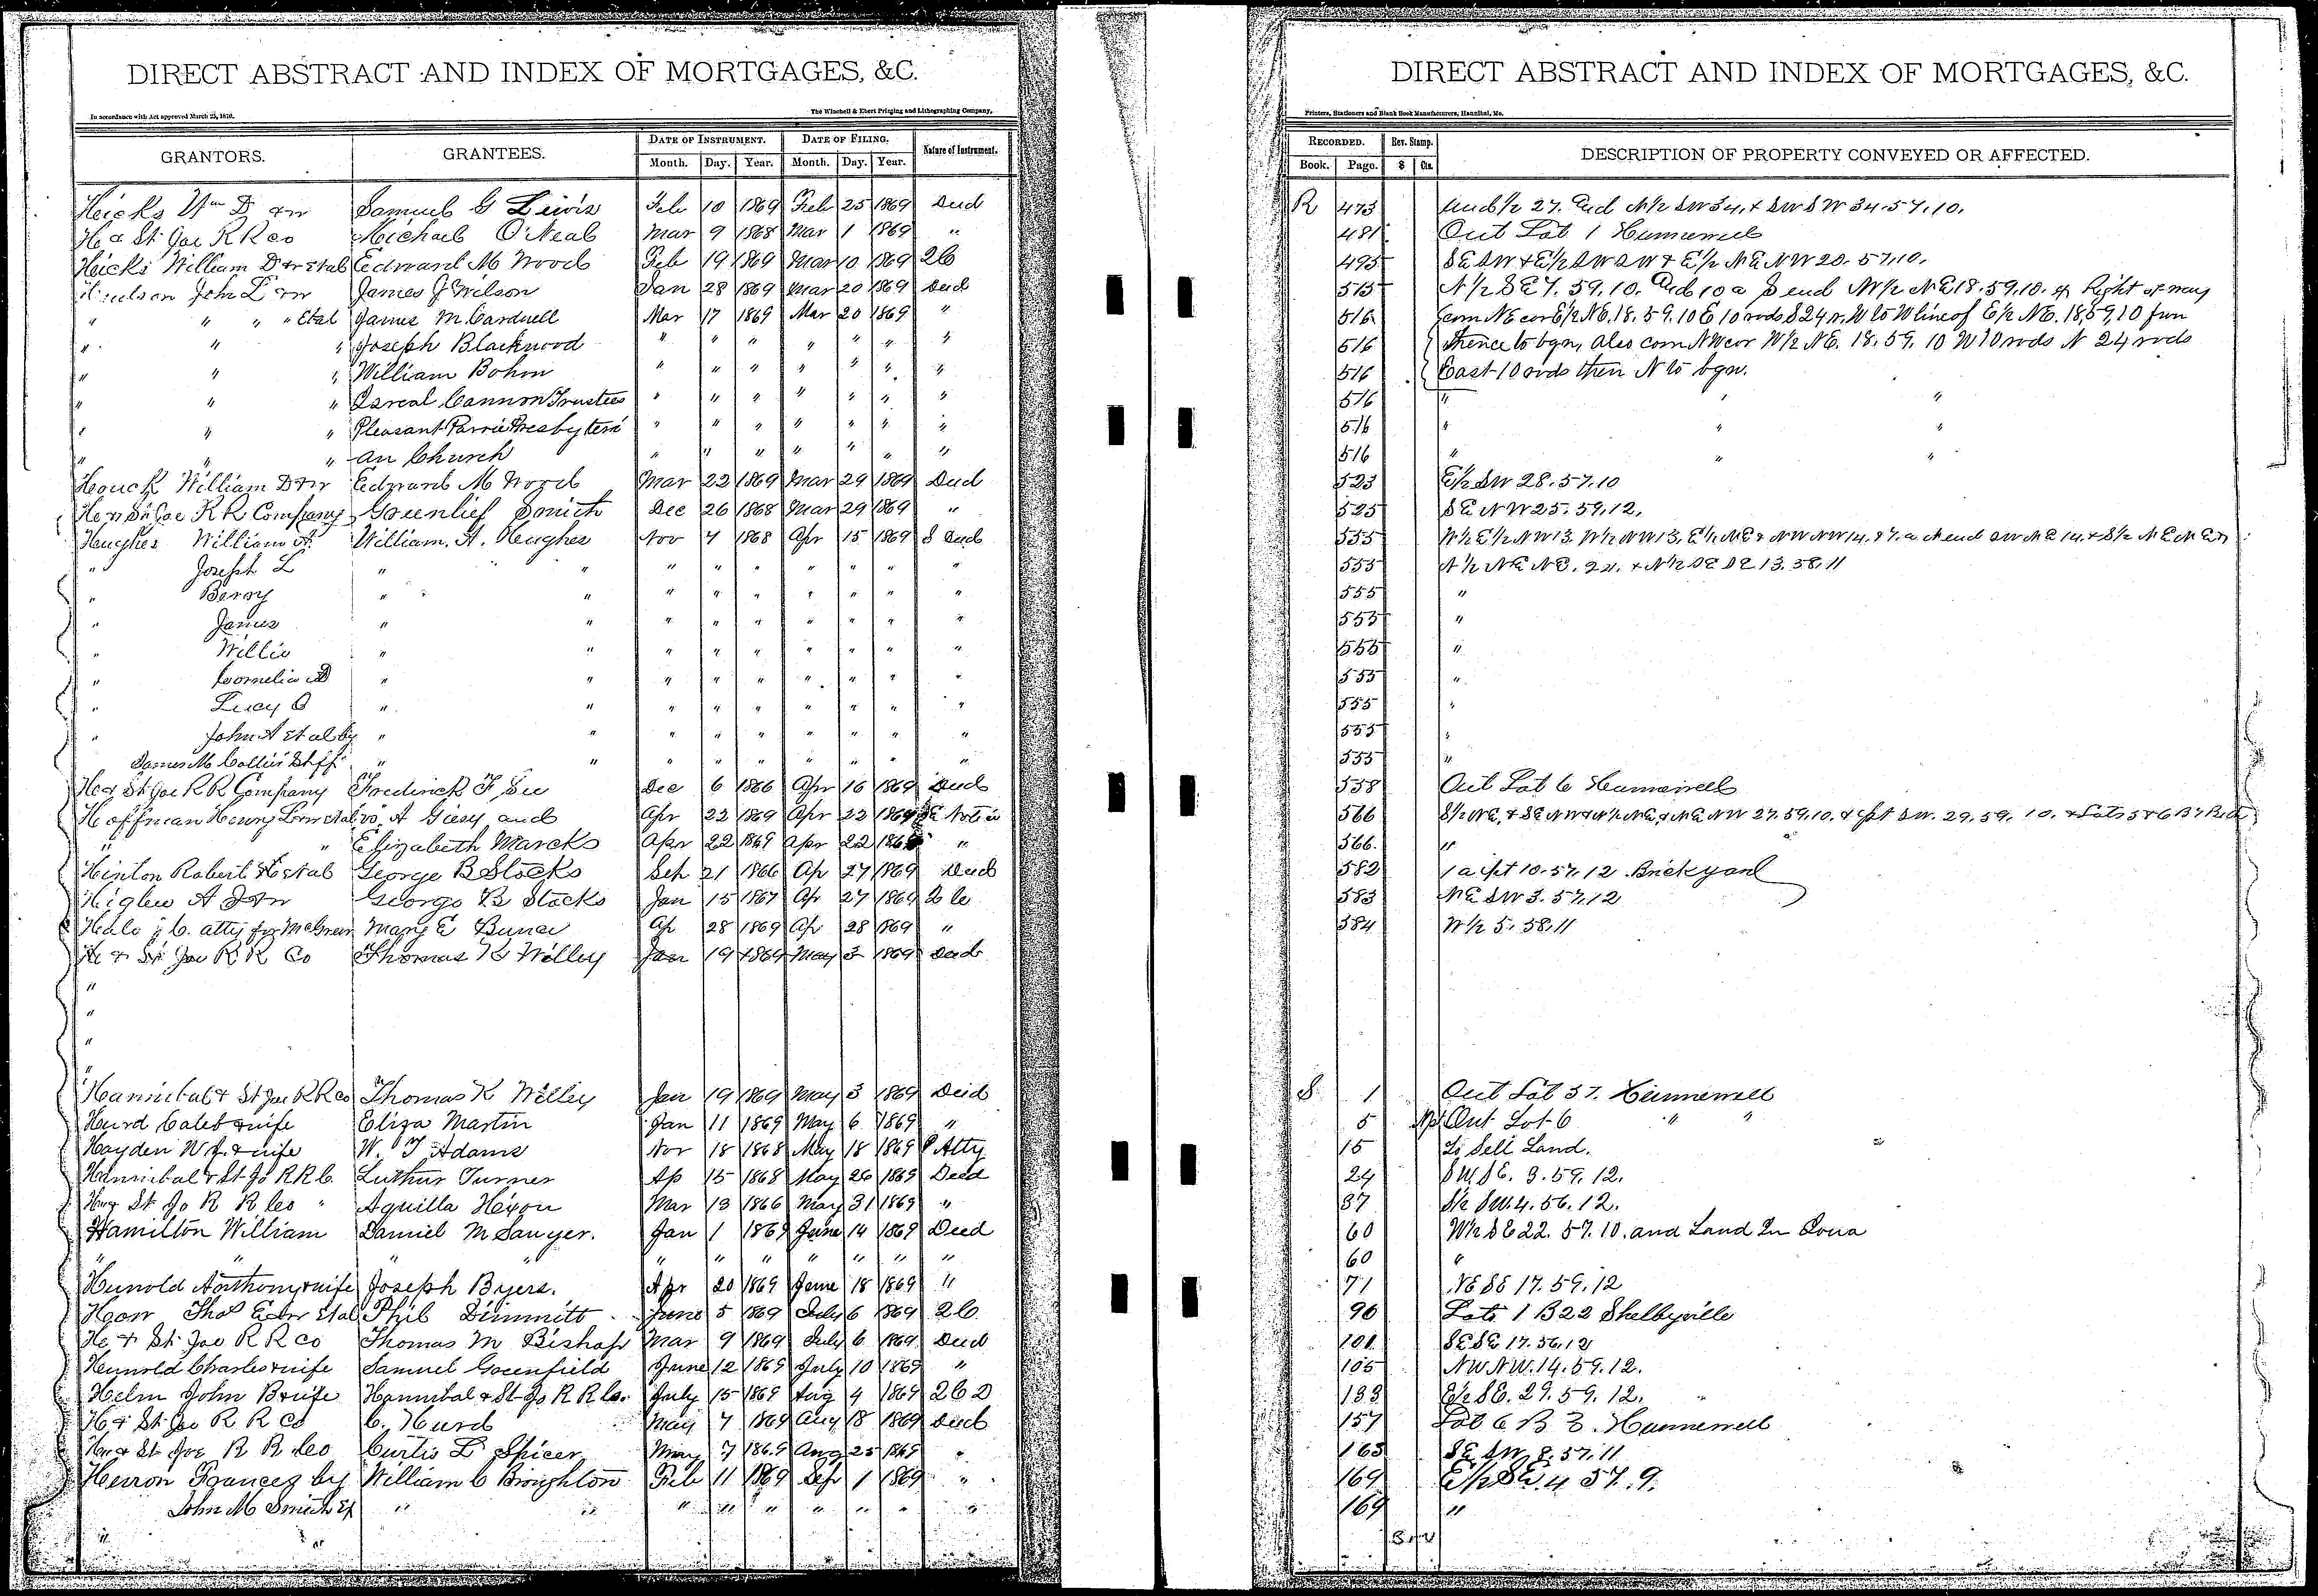 DIRECT ABSTRACT AND INDEX OF MORTGAGES, &C.
In accordance with Act approved March 25, 1870.
The Winchell & Ebert Printing and Lithographing Company,
GRANTORS. GRANTEES. DATE OF INSTRUMENT. DATE OF FILING. Nature of Instrument.
Month. Day. Year. Month. Day. Year.
Hicks Wm D & w Samuel G Lewis Feb 10 1869 Feb 25 1869 Deed
H & St Joe R R Co Michael O'Neal Mar 9 1868 Mar 1 1869 "
Hicks William D & w et al Edward M Wood Feb 19 1869 Mar 10 1869 2C
John L & w James J Wilson Jan 28 1869 Mar 20 1869 Deed
" " " " Etal James M. Cardwell Mar 17 1869 Mar 20 1869 "
" " " Joseph Blackwood " " " " " " "
" " " William Bohon " " " " " " "
" " " Isreal Cannon Trustees " " " " " " "
" " " Pleasant Presbyteri " " " " " " "
" " " an Church " " " " " " "
Houck William D & w Edward M Wood Mar 22 1869 Mar 29 1869 Deed
H & St Joe R R Company Greenlief Smith Dec 26 1868 Mar 29 1869 "
Hughes William A. William. H. Hughes Nov 4 1868 Apr 15 1869 S Deed
" Joseph L " " " " " " " " "
" " " " " " " " " "
" James " " " " " " " " "
" Willie " " " " " " " " "
" Cornelia D " " " " " " " " "
" Lucy O " " " " " " " " "
" John A et al by " " " " " " " " "
James M Collins Shff " " " " " " " " "
H & St Joe R R Company Frederick F See Dec 6 1866 Apr 16 1869 Deed
Hoffman Henry et al vs. A Giesy and Apr 22 1869 Apr 22 1869 Notice
" " Elizabeth Marcks Apr 22 1869 Apr 22 "
Hinton Robert et al George B Stocks Sep 21 1866 Ap 27 1869 Deed
Higbee A J & w George B Stocks Jan 15 1867 Ap 27 1869
Hale J C. atty for Mary E Ap 28 1869 Ap 28 1869 "
H & St Joe R R Co Thomas K Willey Jan 19 1869 May 3 1869 Deed
"
"
"
"
Hannibal & St Joe R R Co Thomas K Willey Jan 19 1869 May 3 1869 Deed
Hurd Caleb & wife Eliza Martin Jan 11 1869 May 6 1869 "
Hayden W J. & wife W. T Adams Nov 18 1868 May 18 1869 P Atty
Hannibal & St Jo R R C. Luthur Turner Ap 15 1868 May 26 1869 Deed
H & St Jo R R Co " Aquilla Hixon Mar 13 1866 May 31 1869 "
Hamilton William Daniel M Sawyer. Jan 1 1869 June 14 1869 Deed
" " " " " " " " "
Hunold Anthony & wife Joseph Byers. Apr 20 1869 June 18 1869 "
Thos E & w Etal Phil Dimmitt June 5 1869 July 6 1869 2C.
H & St Joe R R Co Thomas M Bishop Mar 9 1869 July 6 1869 Deed
Hunold Charles & wife Samuel Greenfield June 12 1869 July 10 1869 "
Helm John B & wife Hannibal & St Jo R R Co. July 15 1869 Aug 4 1869 2C D
H & St Joe R R Co C. Hurd May 7 1869 Aug 18 1869 Deed
H & St Joe R R Co Curtis L Spicer May 7 1869 Aug 25 1869 "
Herron Frances by William C Broughton Feb 11 1869 Sep 1 1869 "
John M Smith Ex " " " " " " " " "
DIRECT ABSTRACT AND INDEX OF MORTGAGES, &C.
Printers, Stationers and Blank Book Manufacturers, Hannibal, Mo.
RECORDED. Rev. Stamp. DESCRIPTION OF PROPERTY CONVEYED OR AFFECTED.
Book. Page. $ Cts.
R 473 Und 1/2 27. End N 1/2 SW 34, & SW SW 34.57.10.
481 Out Lot 1 Hunnewell
495 SE SW & E 1/2 SW SW & E 1/2 NE NW 20. 57.10.
515 N 1/2 SE 7. 59. 10. End 10 a S end W 1/2 NE 18. 59.10. & Right of way
516 Com NE cor E 1/2 NE. 18. 59. 10 E 10 rods S 24 r. W to W line of E 1/2 NE. 18, 59, 10 from
516 thence to bgn, also com NW cor W 1/2 NE. 18. 59. 10 W 10 rods N 24 rods
516 East 10 rods then N to bgn.
516 " " "
516 " " "
516 " " "
523 E 1/2 SW 28. 57. 10
525 SE NW 25. 59. 12.
555 W 1/2 E 1/2 NW 13. W 1/2 NW 13, E 1/2 NE & NW NW 14, & 7. a N end SW NE 14, & S 1/2 NE NE
555 N 1/2 NE NE. 24. & N 1/2 SE SE 13. 58. 11
555 "
555 "
555 "
555 "
555 "
555 "
555 "
558 Out Lot 6 Hunnewell
566 S 1/2 NE, & SE NW & N 1/2 NE, & NE NW 27. 59. 10. & pt SW. 29. 59. 10. & Lots 5 & 6 B
566. "
582 1 a pt 10. 57. 12 Brickyard
583 NE SW 3. 57. 12
584 W 1/2 5. 58. 11
S 1 Out Lot 37. Hunnewell
5 Pt Out Lot 6 " "
15 To Sell Land.
24 SW, SE. 3. 59. 12.
37 S 1/2 SW. 4. 56. 12.
60 W 1/2 SE 22. 57. 10. and Land In Iowa
60 "
71 NE SE 17. 59. 12
90 Lots 1 B 22 Shelbyville
101 SE SE 17. 56. 12
105 NW NW. 14. 59. 12.
133 E 1/2 SE. 29. 59. 12.
157 Lot 6 B 3. Hunnewell
163 SE SW 8. 57. 11
169 E 1/2 4 57. 9.
169 "